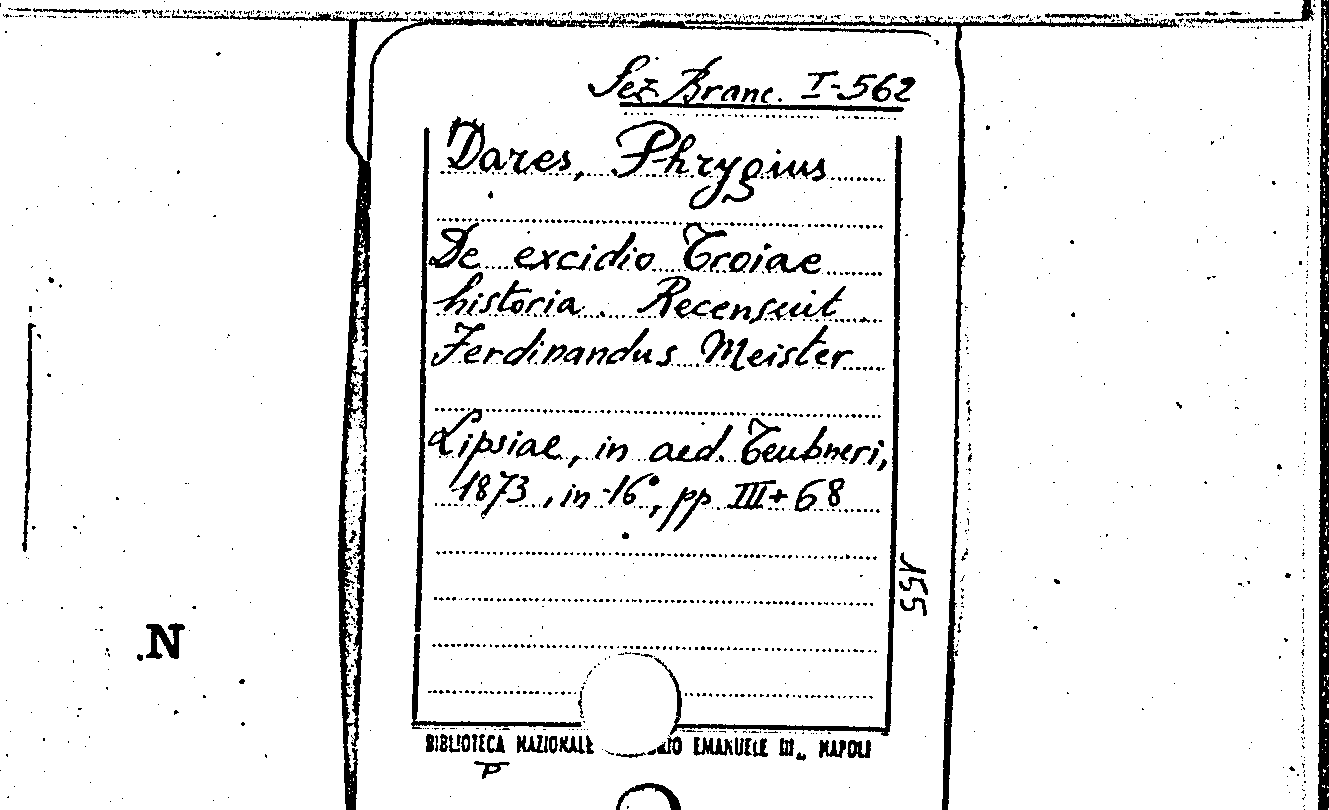 Sez Branc. I-562
Dares, Phrygius
De excidio Troiae
historia. Recensuit
Ferdinandus Meister
Lipsiae, in aed. Teubneri,
1873, in-16°, pp III+68
155
.N
BIBLIOTECA NAZIONALE EMANUELE III., NAPOLI
P